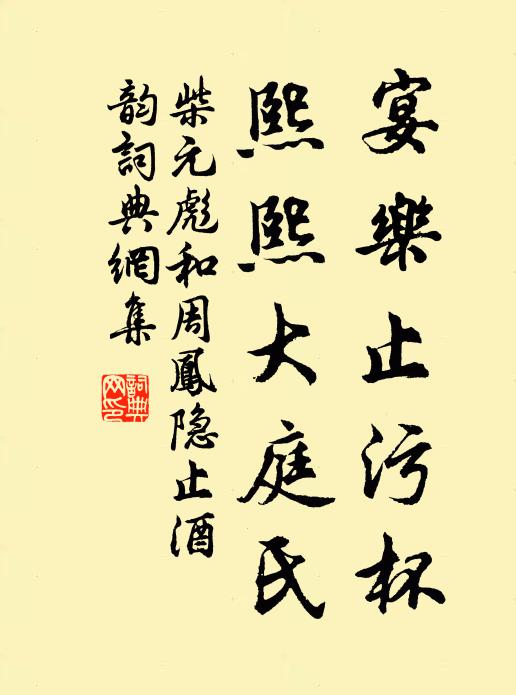 宴樂止污杯
熙熙大庭氏
柴元彪和周鳳隐止酒
韵詞典網集
詞典网印